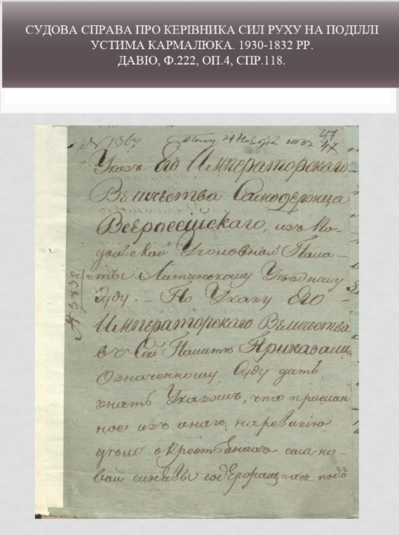 СУДОВА СПРАВА ПРО КЕРІВНИКА СИЛ РУХУ НА ПОДІЛЛІ
УСТИМА КАРМАЛЮКА. 1930-1832 РР.
ДАВІО, Ф.222, ОП.4, СПР.118.
№ 1367
47
Указъ Его Императорскаго
Величества Самодержца
Всероссійскаго, изъ По-
дольской Уголовной Пала-
ты Литинскому Уѣздному
Суду. – По Указу Его
Императорскаго Величества
въ сей Палатѣ Приказали
Означенному Суду дать
знать Указомъ, что прислан-
ное изъ онаго на ревизію
дѣло о крестьянинѣ села